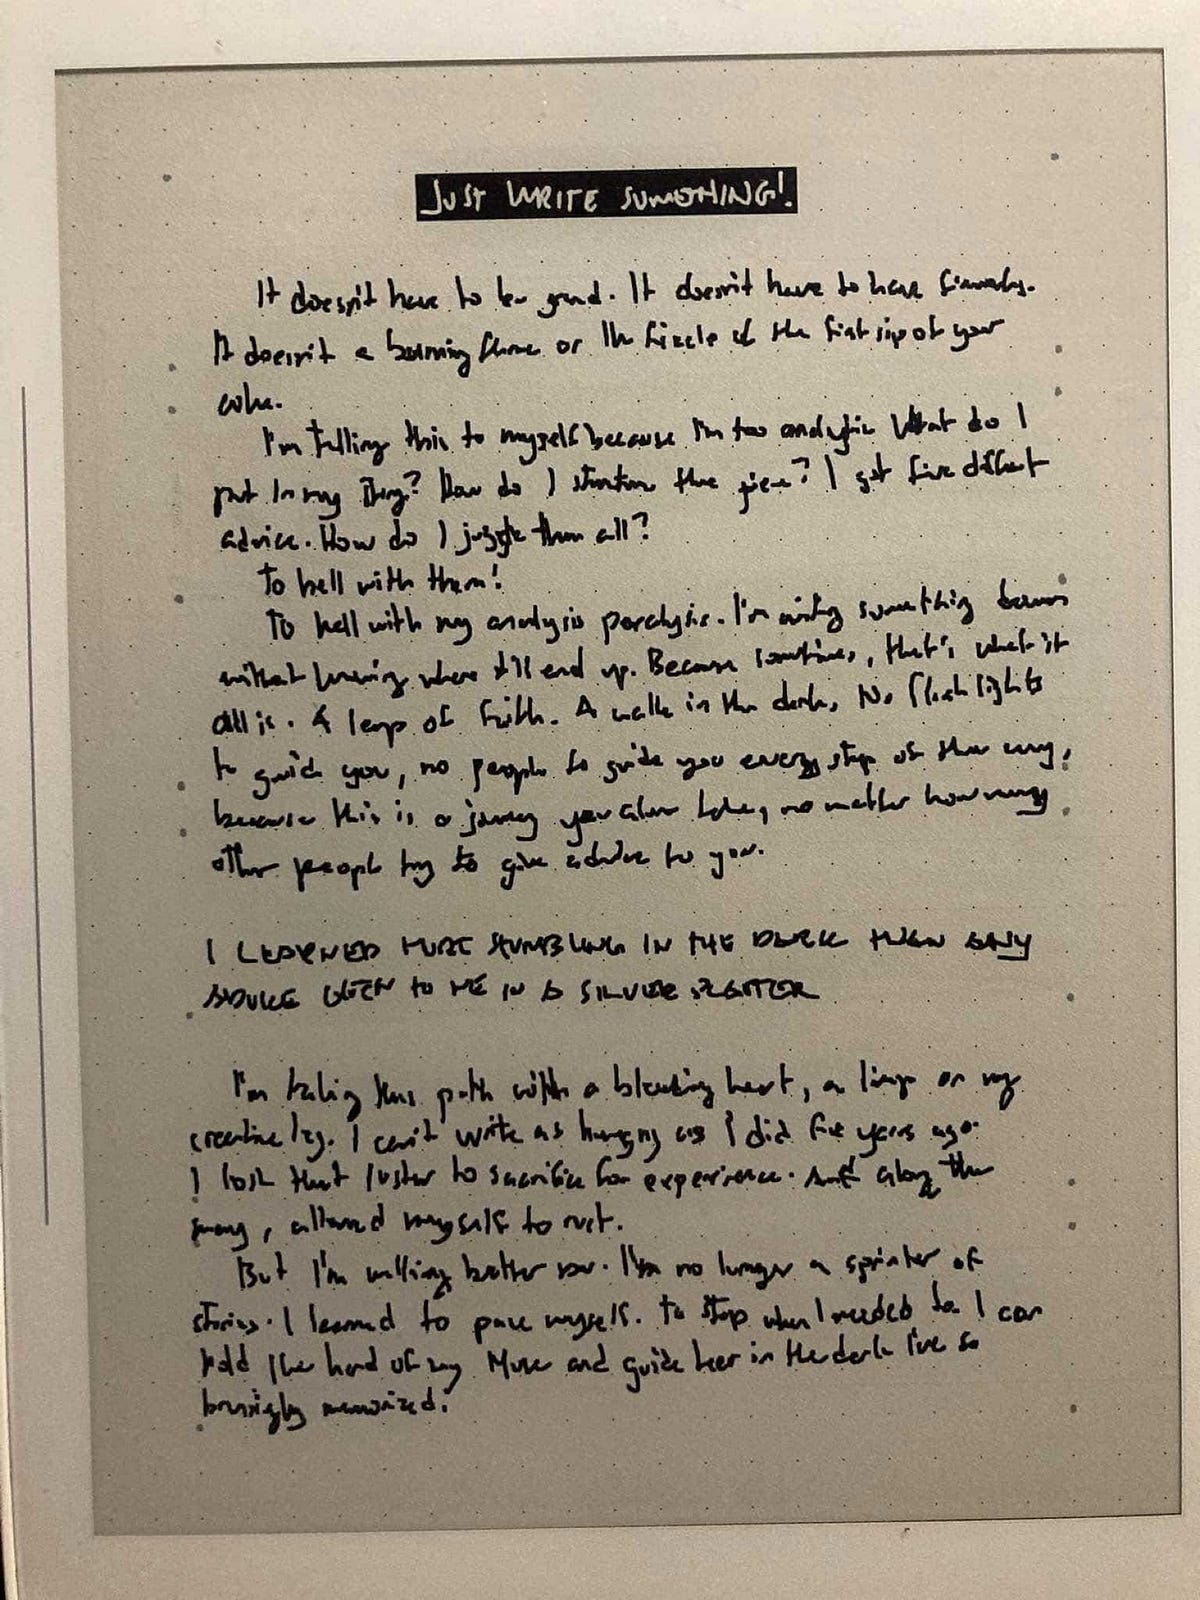 JUST WRITE SUMOTHING!
It doesn't have to be grand. It doesn't have to have
It doesn't a burning flame or the fizzle of the first sip of your
coke.
I'm telling this to myself because I'm too analytic What do I
put in my story? How do I structure the piece? I get five different
advice. How do I juggle them all?
To hell with them!
To hell with my analysis paralysis. I'm writing something
without knowing where it'll end up. Because sometimes, that's what it
all is. A leap of faith. A walk in the dark, No flashlights
to guide you, no people to guide you every step of the way,
because this is a journey you alone take, no matter how many
other people try to give advice to you.
I LEARNED MORE STUMBLING IN THE DARK THAN ANY
ADVICE GIVEN TO ME IN A SILVER PLATTER
I'm taking this path with a bleeding heart, a limp on my
creative leg. I can't write as hungry as I did five years ago.
I lost that luster to sacrifice for experience. And along the
way, allowed myself to rust.
But I'm walking better now. I'm no longer a sprinter of
stories. I learned to pace myself. To stop when I needed to. I can
hold the hand of my Muse and guide her in the dark I've so
bruisingly memorized.